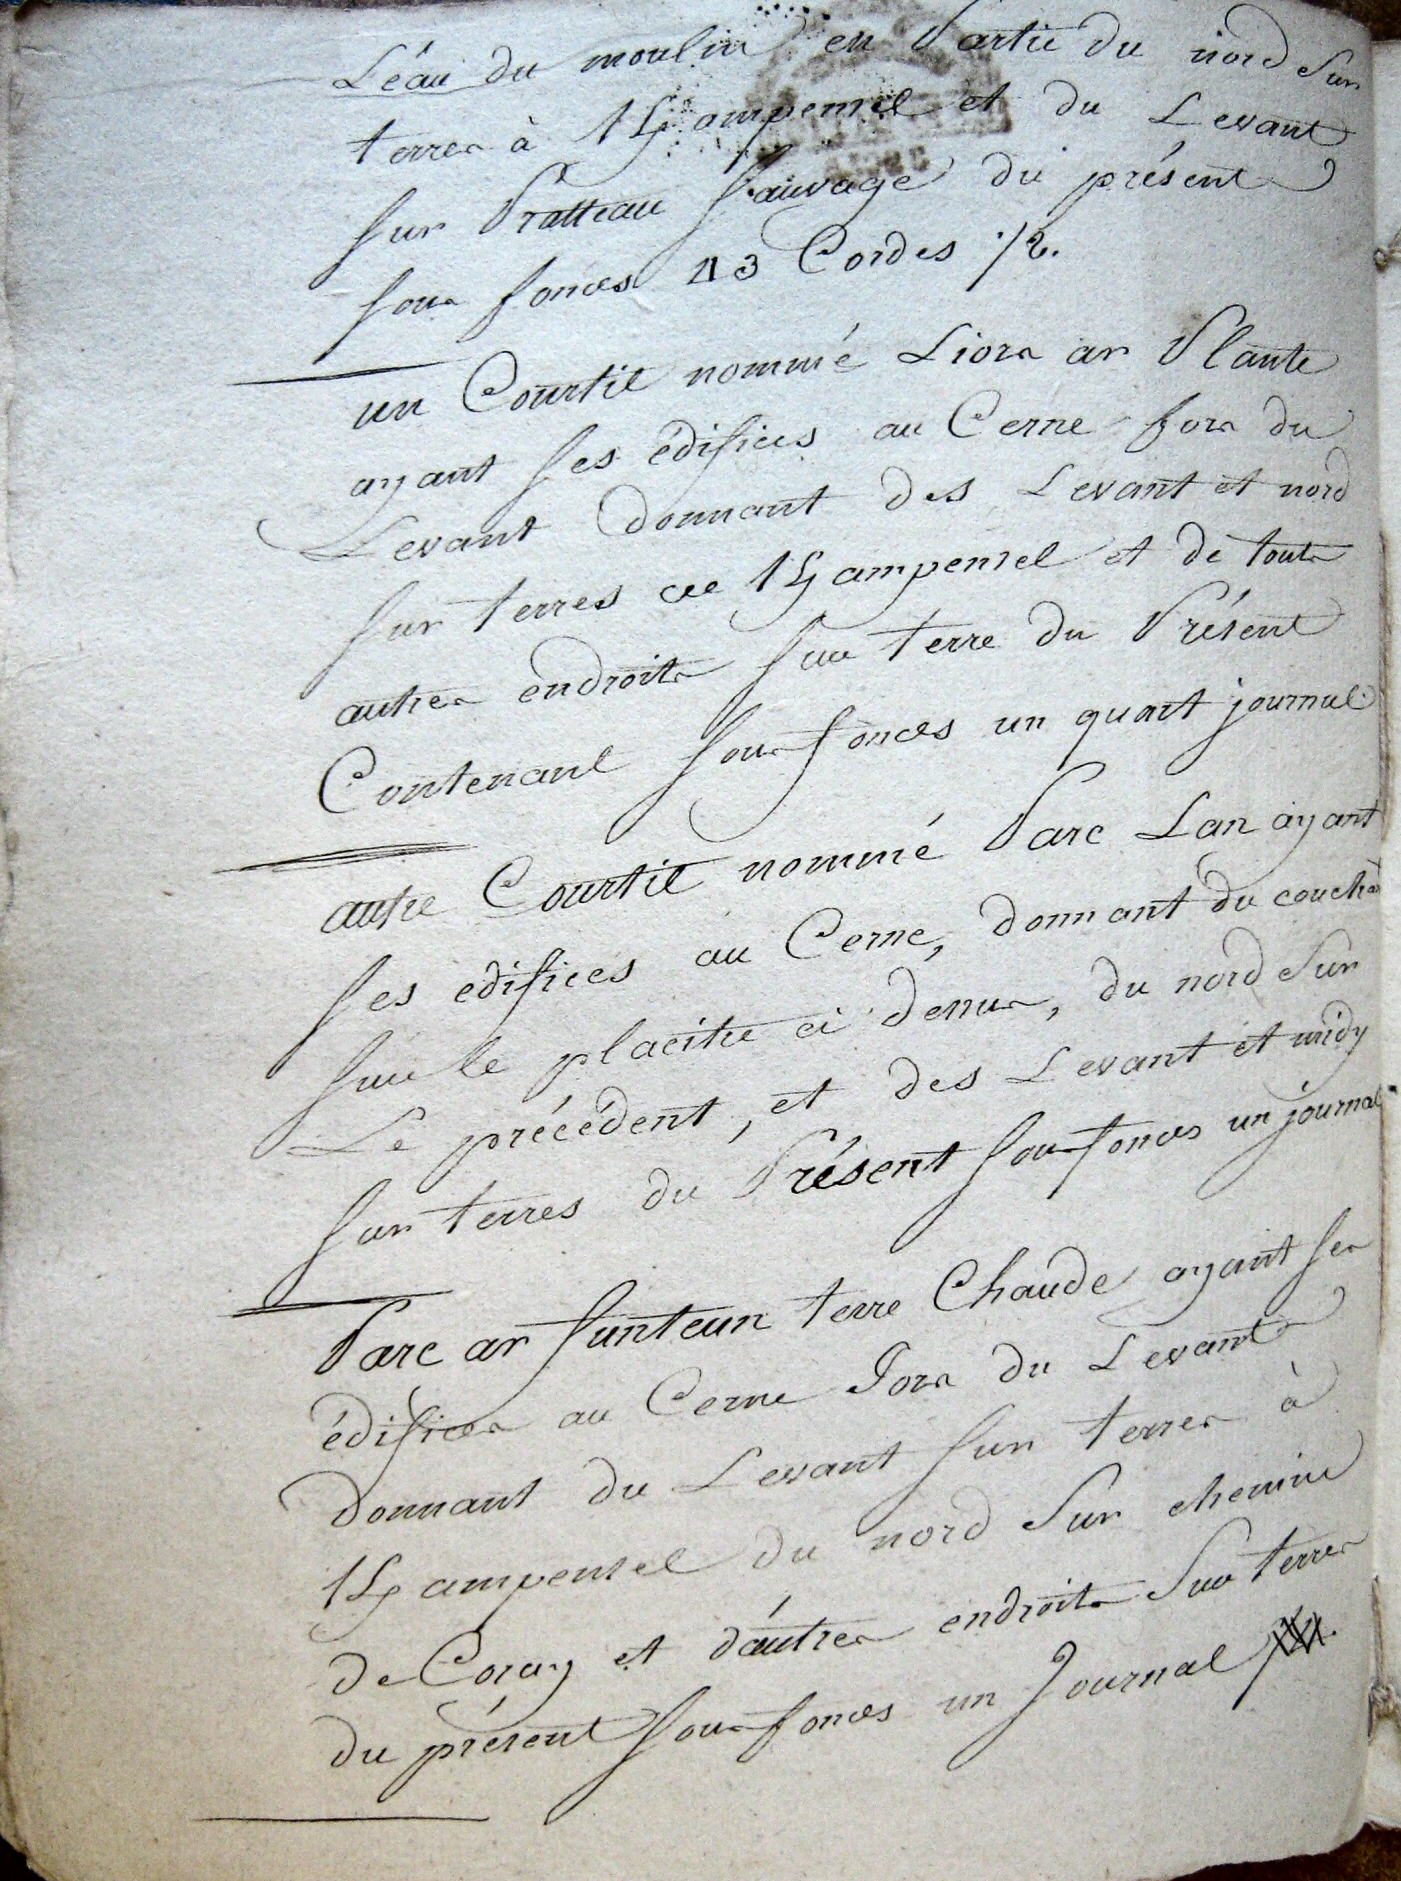 L'eau du moulin en Partie du nord Sur
terres à Kampensel et du Levant
sur Pratteau Sauvage du présent
sous fonces 43 Cordes 1/2.
un Courtil nommé Liors ar Plante
ayant ses édifices au Cerne fors du
Levant donnant des Levant et nord
sur terres de Kampensel et de touts
autres endroits sur terre du Présent
Contenant sous fonces un quart journal
autre Courtil nommé Parc Lan ayant
ses edifices au Cerne, donnant du couchant
sur le placitre ci dessus, du nord Sur
Le précédent, et des Levant et midy
sur terres du Présent sous fonces un journal
Parc ar funteun terre Chaude ayant ses
édifices au Cerne Fors du Levant
donnant du Levant sur terres à
Kampensel du nord Sur chemin
de Coray et d'autres endroits Sur terres
du présent sous fonces un Journal